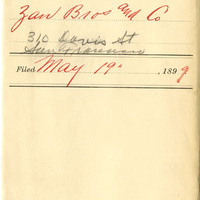 Zan Bros and Co
310 Davis St
San Francisco
Filed May 19" , 1899